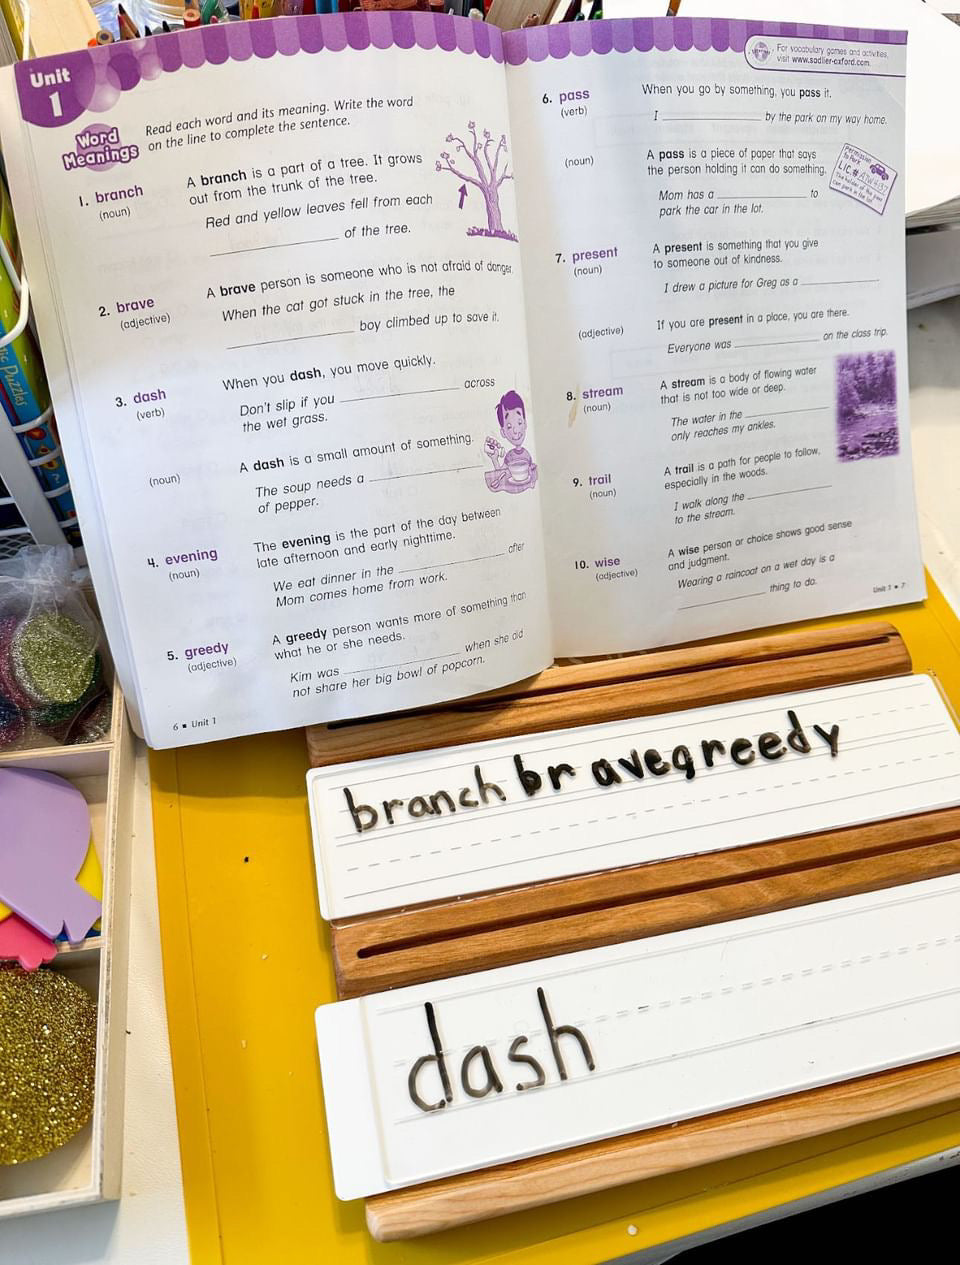 Unit
1
Word
Meanings
Read each word and its meaning. Write the word
on the line to complete the sentence.
1. branch
(noun)
A branch is a part of a tree. It grows
out from the trunk of the tree.
Red and yellow leaves fell from each
of the tree.
2. brave
(adjective)
A brave person is someone who is not afraid of danger.
When the cat got stuck in the tree, the
boy climbed up to save it.
3. dash
(verb)
When you dash, you move quickly.
Don't slip if you across
the wet grass.
(noun)
A dash is a small amount of something.
The soup needs a
of pepper.
4. evening
(noun)
The evening is the part of the day between
late afternoon and early nighttime.
We eat dinner in the after
Mom comes home from work.
5. greedy
(adjective)
A greedy person wants more of something than
what he or she needs.
Kim was when she did
not share her big bowl of popcorn.
6 ■ Unit 1
For vocabulary games and activities,
visit www.sadlier-oxford.com.
6. pass
(verb)
When you go by something, you pass it.
I by the park on my way home.
(noun)
A pass is a piece of paper that says
the person holding it can do something.
Mom has a to
park the car in the lot.
Permission
To Park
LIC.#
The holder of this pass
can park in the lot
7. present
(noun)
A present is something that you give
to someone out of kindness.
I drew a picture for Greg as a .
(adjective)
If you are present in a place, you are there.
Everyone was on the class trip.
8. stream
(noun)
A stream is a body of flowing water
that is not too wide or deep.
The water in the
only reaches my ankles.
9. trail
(noun)
A trail is a path for people to follow,
especially in the woods.
I walk along the
to the stream.
10. wise
(adjective)
A wise person or choice shows good sense
and judgment.
Wearing a raincoat on a wet day is a
thing to do.
Unit 1 ■ 7
tic Puzzles
branch br avegreedy
dash